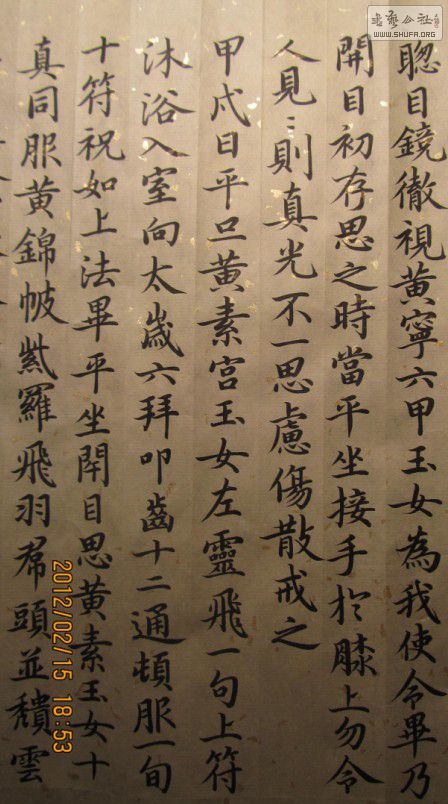 聦目鏡徹視黃寧六甲玉女為我使令畢乃
開目初存思之時當平坐接手於膝上勿令
人見〻則真光不一思慮傷散戒之
甲戌日平旦黃素宮玉女左靈飛一句上符
沐浴入室向太歲六拜叩齒十二通頓服一旬
十符祝如上法畢平坐閇目思黃素玉女十
真同服黃錦帔紫羅飛羽帬頭並穨雲
WWW.SHUFA.ORG
2012/02/15 18:53